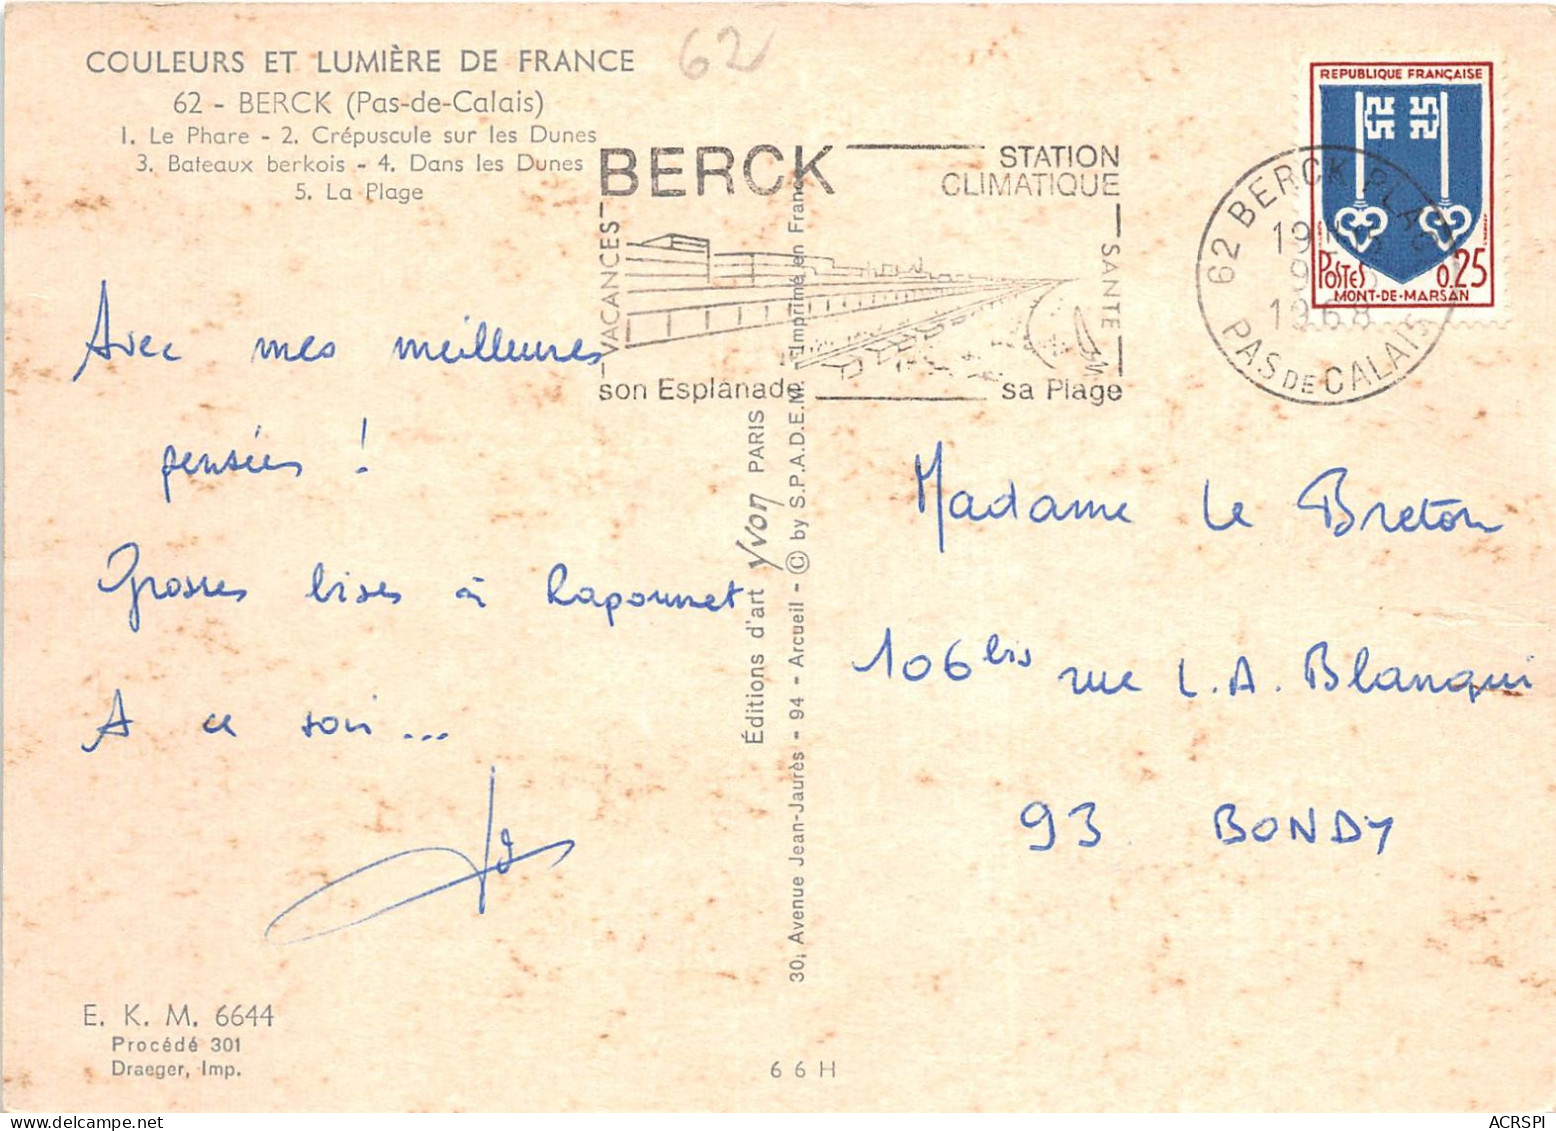 COULEURS ET LUMIÈRE DE FRANCE
62
62 - BERCK (Pas-de-Calais)
1. Le Phare - 2. Crépuscule sur les Dunes
3. Bateaux berkois - 4. Dans les Dunes
5. La Plage
BERCK
STATION
CLIMATIQUE
VACANCES
SANTE
son Esplanade
sa Plage
REPUBLIQUE FRANÇAISE
POSTES
0.25
MONT-DE-MARSAN
62 BERCK PLAGE
1968
PAS DE CALAIS
Avec mes meilleures
pensées !
Grosses bises à Raponnet
A ce soir...
Éditions d'art Yvon PARIS
30, Avenue Jean-Jaurès - 94 - Arcueil - © by S.P.A.D.E.M. - Imprimé en France
Madame Le Breton
106 bis rue L.A. Blanqui
93 BONDY
E. K. M. 6644
Procédé 301
Draeger, Imp.
66H
ACRSPI